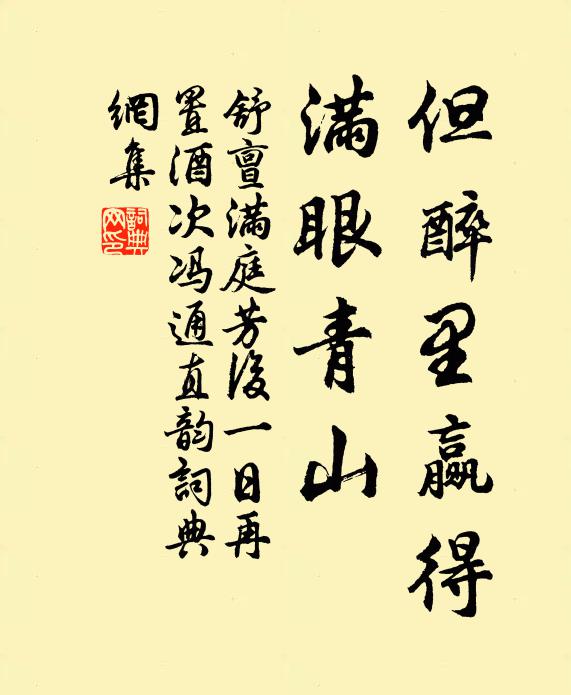 但醉里赢得
满眼青山
舒亶满庭芳後一日再
置酒次冯通直韵词典
网集
词典
网印